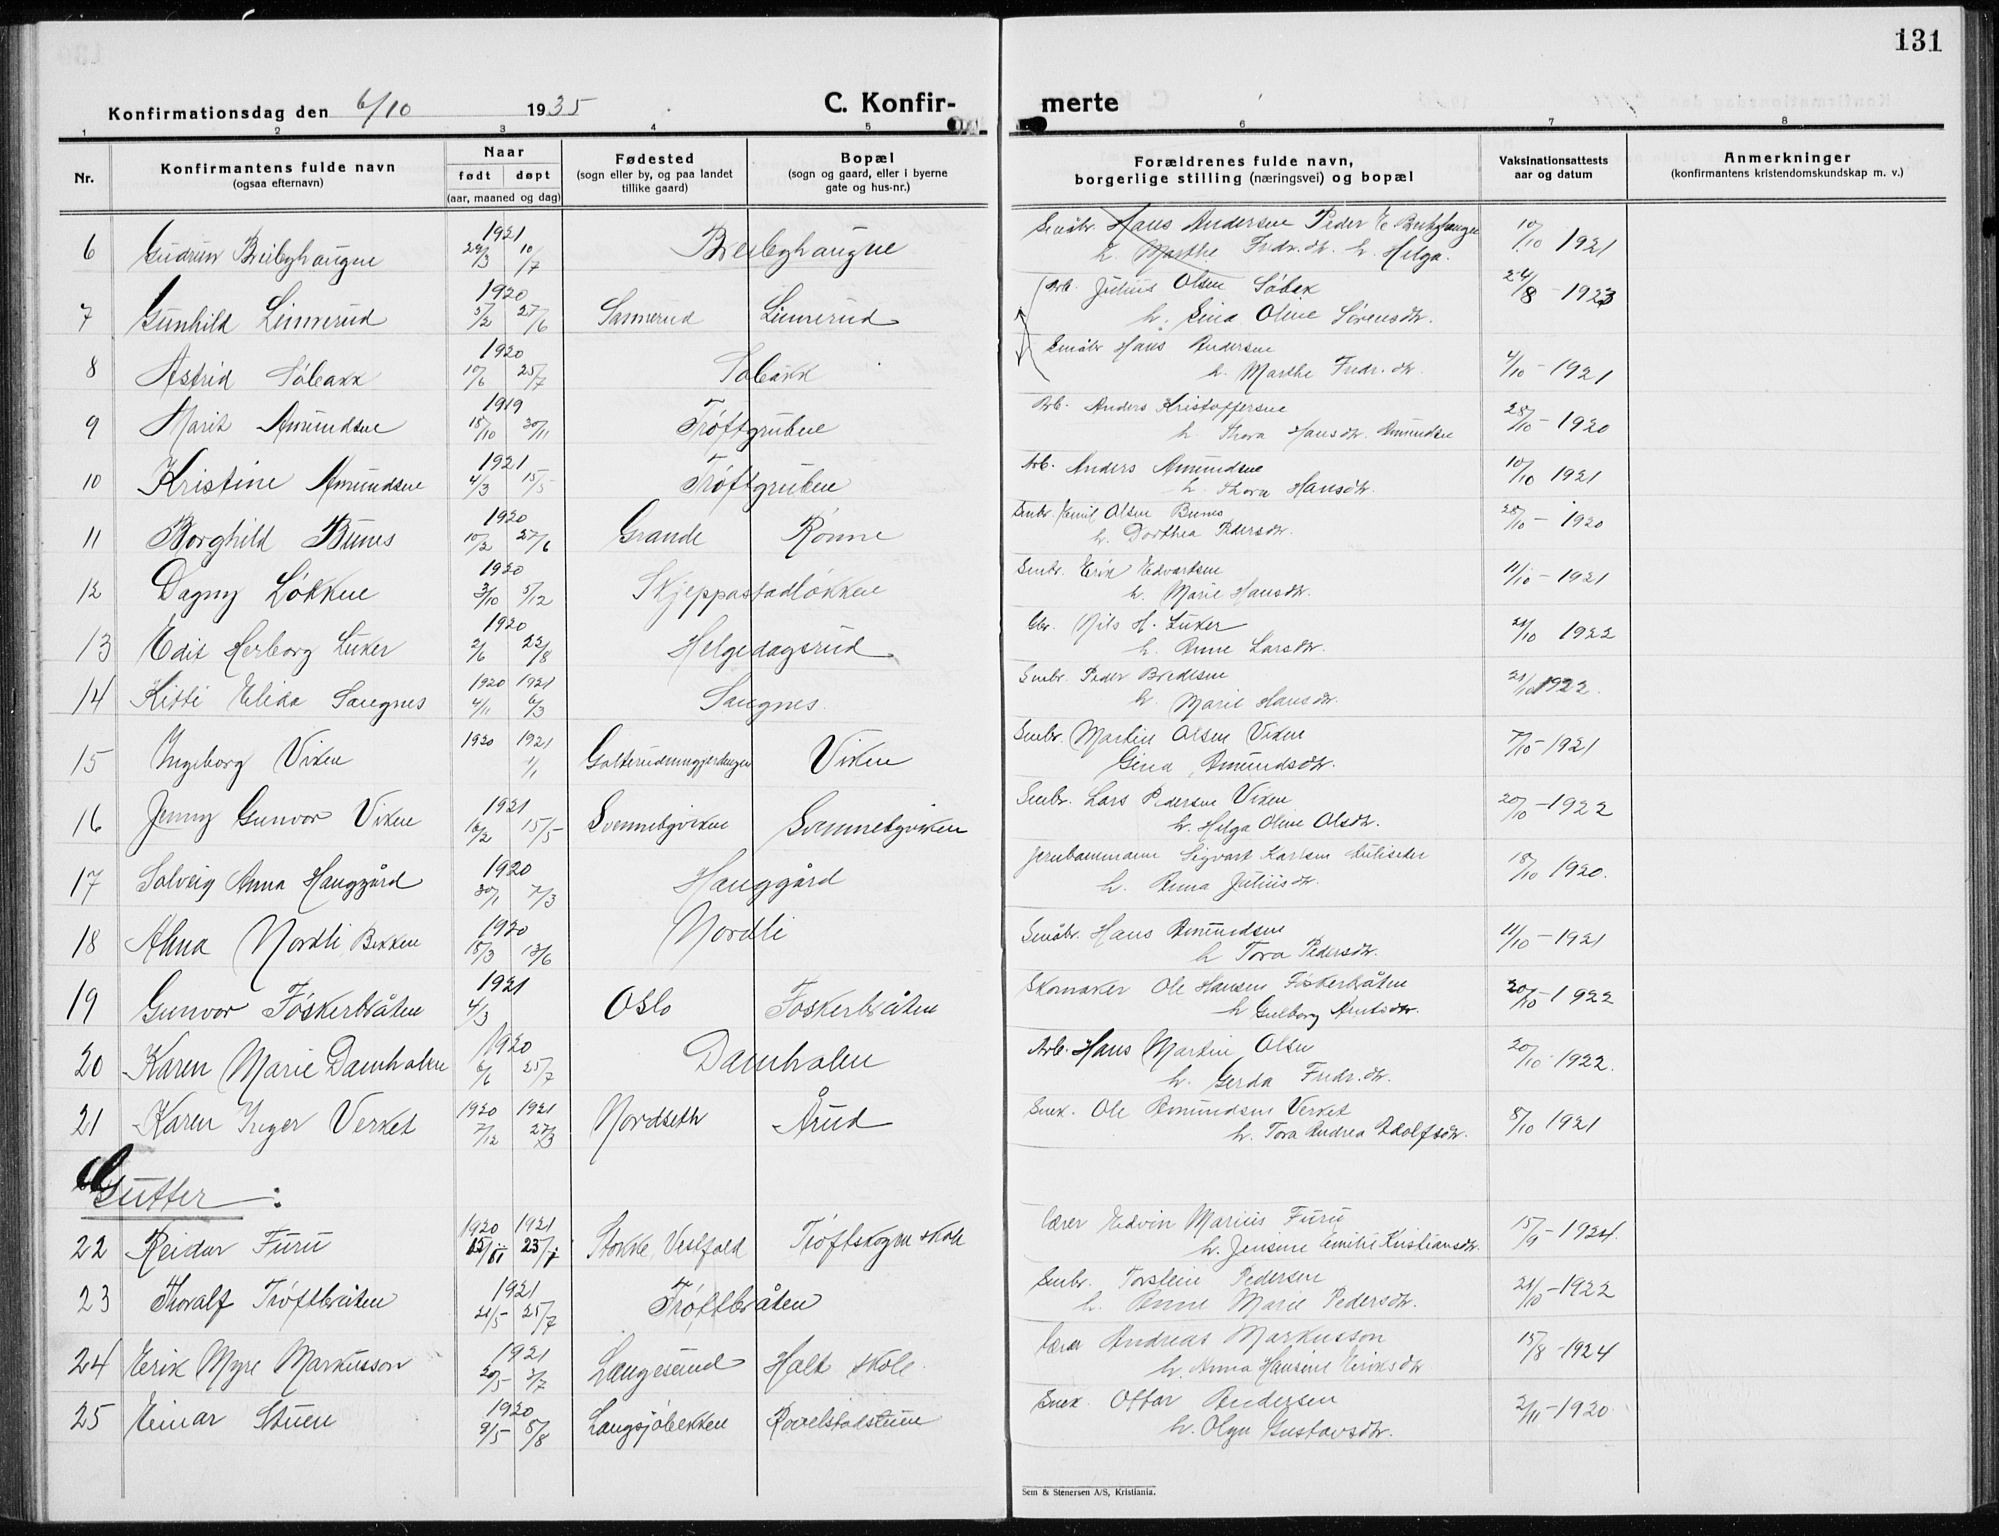 131
Konfirmationsdag den 6/10 1935 C. Konfirmerte
1 2 3 4 5 6 7 8
Nr. Konfirmantens fulde navn (ogsaa efternavn) Naar født døpt (aar, maaned og dag) Fødested (sogn eller by, og paa landet tillike gaard) Bopæl (sogn og gaard, eller i byerne gate og hus-nr.) Forældrenes fulde navn, borgerlige stilling (næringsvei) og bopæl Vaksinationsattests aar og datum Anmerkninger (konfirmantens kristendomskundskap m. v.)
6 Gudrun Breibyhaugne 1921 29/3 10/7 Breibyhaugne Småbr. Hans Andersne Peder E. h. Marthe Fredr.dtr. h. Helga. 10/10 1921
7 Gunhild Linnerud 1920 5/2 27/6 Sannerud Linnerud Arb. Julius Olsen Søbak h. Gina Oline Sørensdtr. 24/8 - 1923
8 Astrid Søbakk 1920 10/6 25/7 Søbakk Småbr. Hans Andersne h. Marthe Fredr.dtr. 4/10 - 1921
9 Marit Amundsne 1919 18/10 30/11 Trøftgrubne Arb. Anders Kristoffersne h. Thora Hansdtr. Amundsne 28/10 - 1920
10 Kristine Amundsne 1921 4/3 15/5 Trøftgruben Arb. Anders Amundsne h. Thora Hansdtr. 10/10 1921
11 Borghild Bunes 1920 10/2 27/6 Grande Rønne Smbr. Emil Olsen Bunes h. Dorthea Pedersdtr. 28/10 - 1920
12 Dagny Løkkne 1920 3/10 5/12 Skjeppastadløkkne Smbr. Erik Edvartsne h. Marie Hansdtr. 11/10 - 1921
13 Edit Herborg Luker 1920 2/6 22/8 Helgedagsrud Gbr. Nils H. Luker h. Anne Larsdtr. 21/10 1922
14 Kitti Elida Sangnes 1920 1921 4/11 6/3 Sangnes. Smbr. Peder Bredesne h. Marie Hansdtr. 21/10 1922.
15 Ingeborg Viken 1920 1921 1/1 Viken Smbr. Martin Olsen Viken Gina Amundsdtr. 7/10 - 1921
16 Jenny Gunvor Viken 1921 16/2 15/5 Svennebyviken Svennebyviken Smbr. Lars Pedersne Viken h. Helga Oline Olsdtr. 20/10 - 1922
17 Solveig Anna Hauggård 1920 30/1 7/3 Hauggård Jernbanemann Sigvart Karlsen h. Anna Juliusdtr. 18/10 1920.
18 Alma Nordli Bekken 1920 18/3 13/6 Nordli Småbr. Hans Amundsne h Tora Pedersdtr. 11/10 - 1921
19 Gunvor Foskerbråten 1921 4/3 Oslo Foskerbråten Skomaker Ole Hansen Foskerbråten h Gulborg 20/10 - 1922
20 Karen Marie Damholen 1920 6/6 25/7 Damholen Arb. Hans Martin Olsen h. Gerda Fredr.dtr. 20/10 1922.
21 Karen Inger Verket 1920 1921 7/12 27/3 Nordseth Årud Snek. Ole Amundsne Verket h. Tora Andrea Adolfsdtr. 8/10 1921
Gutter:
22 Reidar Furu 1920 1921 Stokke, Vestfold Trøftskogen skole lærer Edvin Marius Furu h. Jensine Emilie Kristiansdtr. 15/9 - 1924.
23 Thoralf Trøftbråten 1921 21/5 25/7 Trøftbråten Smbr. Torstein Pedersen h. Anne Marie Pedersdtr. 21/10 - 1922
24 Erik Myre Markusson 1921 20/5 3/7 Langesund Holt skole. lærer Andreas Markusson h. Anna Hansine Eriksdtr 15/8 - 1924
25 Einar Stuen 1920 9/5 8/8 Langsjøbekken Rovelstadstuen Snek Ottar Andersen h. Olga Gustavsdtr. 2/11 - 1920
Sem & Stenersen A/S, Kristiania.